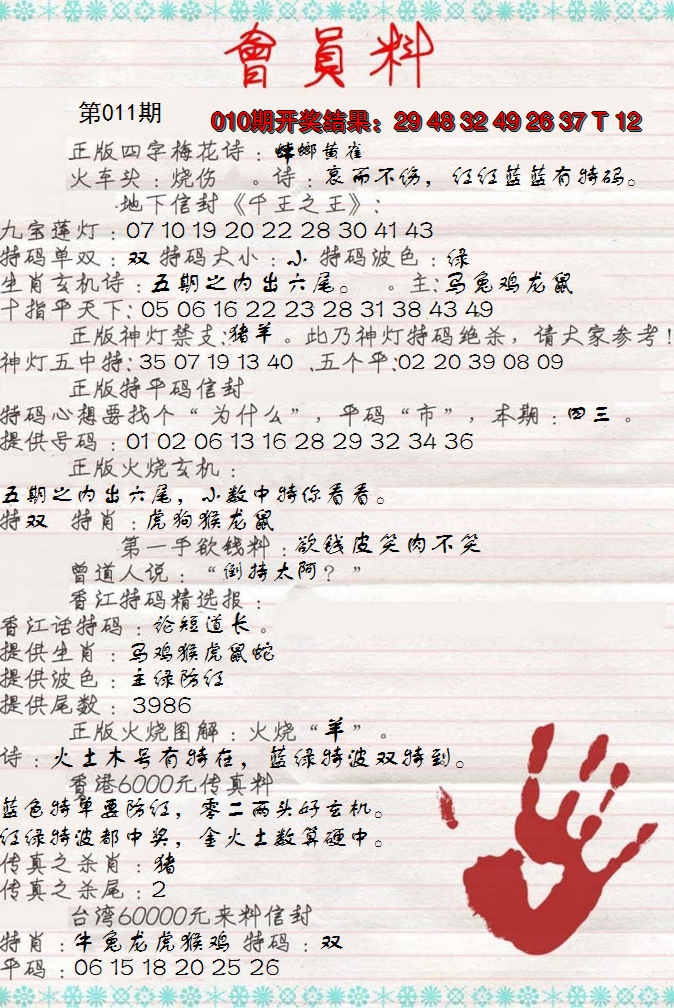 會員料
第011期
010期开奖结果：29 48 32 49 26 37 T 12
正版四字梅花诗：螳螂黄雀
火车头：烧伤 。诗：哀而不伤，红红蓝蓝有特码。
地下信封《千王之王》：
九宝莲灯：07 10 19 20 22 28 30 41 43
特码单双：双 特码大小：小 特码波色：绿
生肖玄机诗：五期之内出六尾。 。主:马兔鸡龙鼠
十指平天下：05 06 16 22 23 28 31 38 43 49
正版神灯禁支:猪羊。此乃神灯特码绝杀，请大家参考！
神灯五中特:35 07 19 13 40 、五个平:02 20 39 08 09
正版特平码信封
特码心想要找个“为什么”，平码“市”，本期：四三。
提供号码：01 02 06 13 16 28 29 32 34 36
正版火烧玄机：
五期之内出六尾，小数中特你看看。
特双 特肖：虎狗猴龙鼠
第一手欲钱料：欲钱皮笑肉不笑
曾道人说：“倒持太阿？”
香江特码精选报：
香江话特码：论短道长。
提供生肖：马鸡猴虎鼠蛇
提供波色：主绿防红
提供尾数：3986
正版火烧图解：火烧“羊”。
诗：火土木号有特在，蓝绿特波双特到。
香港6000元传真料
蓝色特单要防红，零二两头好玄机。
红绿特波都中奖，金火土数算硬中。
传真之杀肖：猪
传真之杀尾：2
台湾60000元来料信封
特肖：牛兔龙虎猴鸡 特码：双
平码：06 15 18 20 25 26